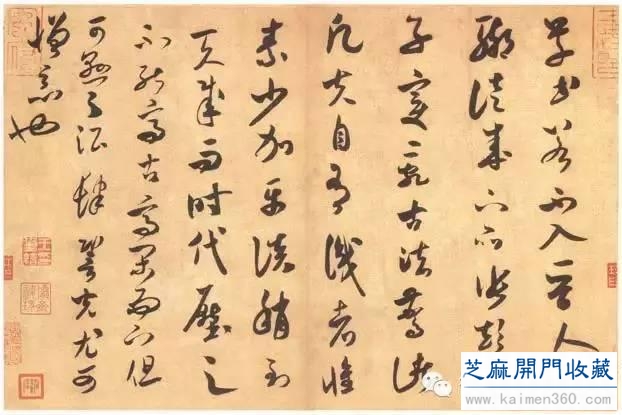 草書若不入晉人
輒徒成下品張顛
子變亂古法驚諸
凡夫自有識者懷
素少加平淡稍到
天成而時代壓之
不能高古高閑而下但
可懸之酒肆䛒光尤可
憎惡也
芝麻開門收藏
www.kaimen360.com